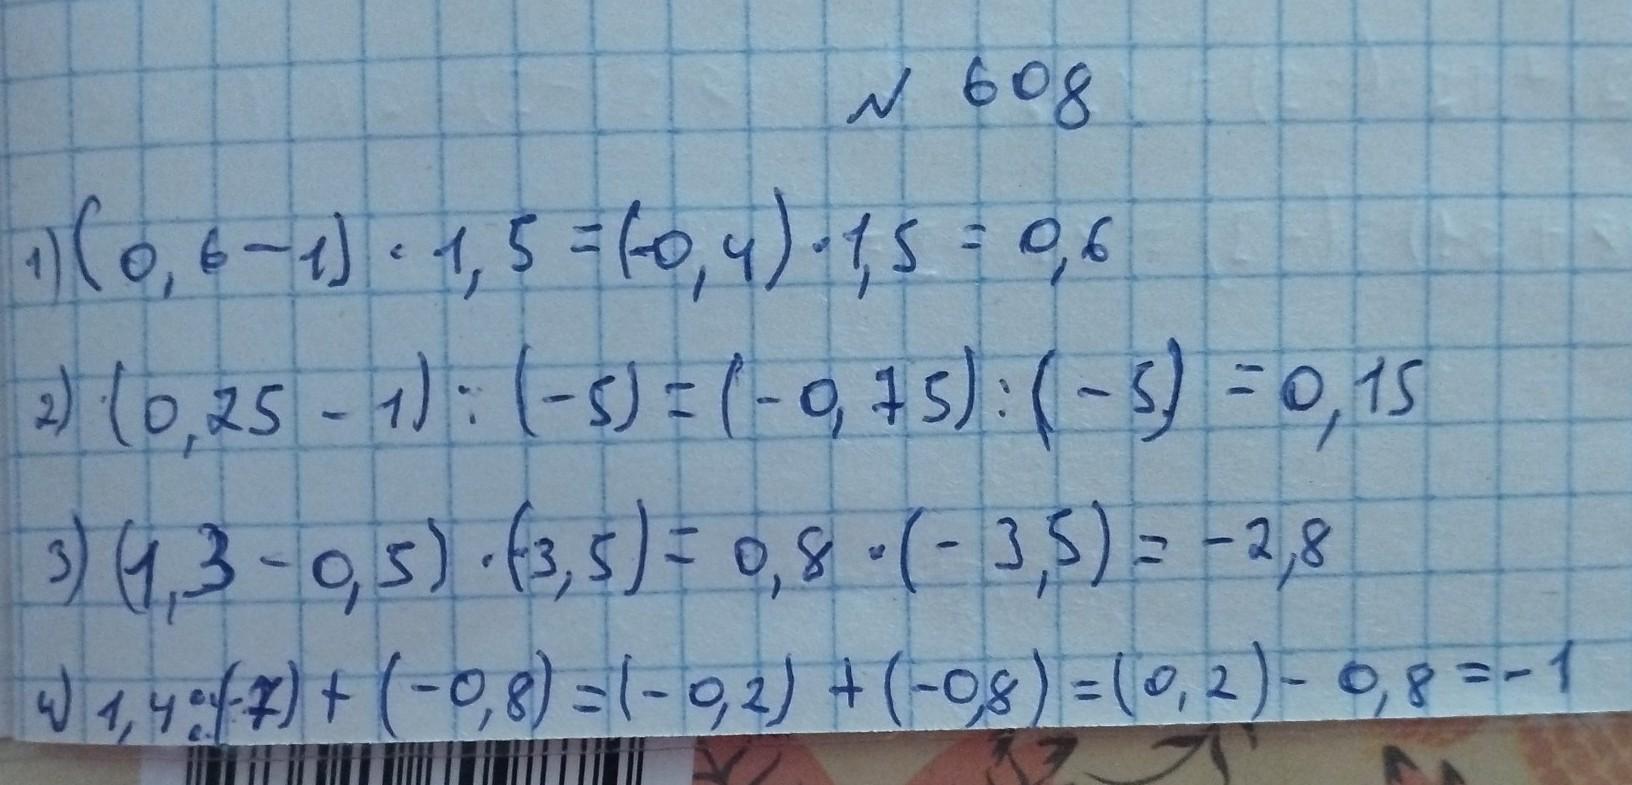 № 608
1) (0,6-1) · 1,5 = (-0,4) · 1,5 = 0,6
2) (0,25 - 1) : (-5) = (-0,75) : (-5) = 0,15
3) (1,3 - 0,5) · (-3,5) = 0,8 · (-3,5) = -2,8
4) 1,4 : (-7) + (-0,8) = (-0,2) + (-0,8) = (0,2) - 0,8 = -1